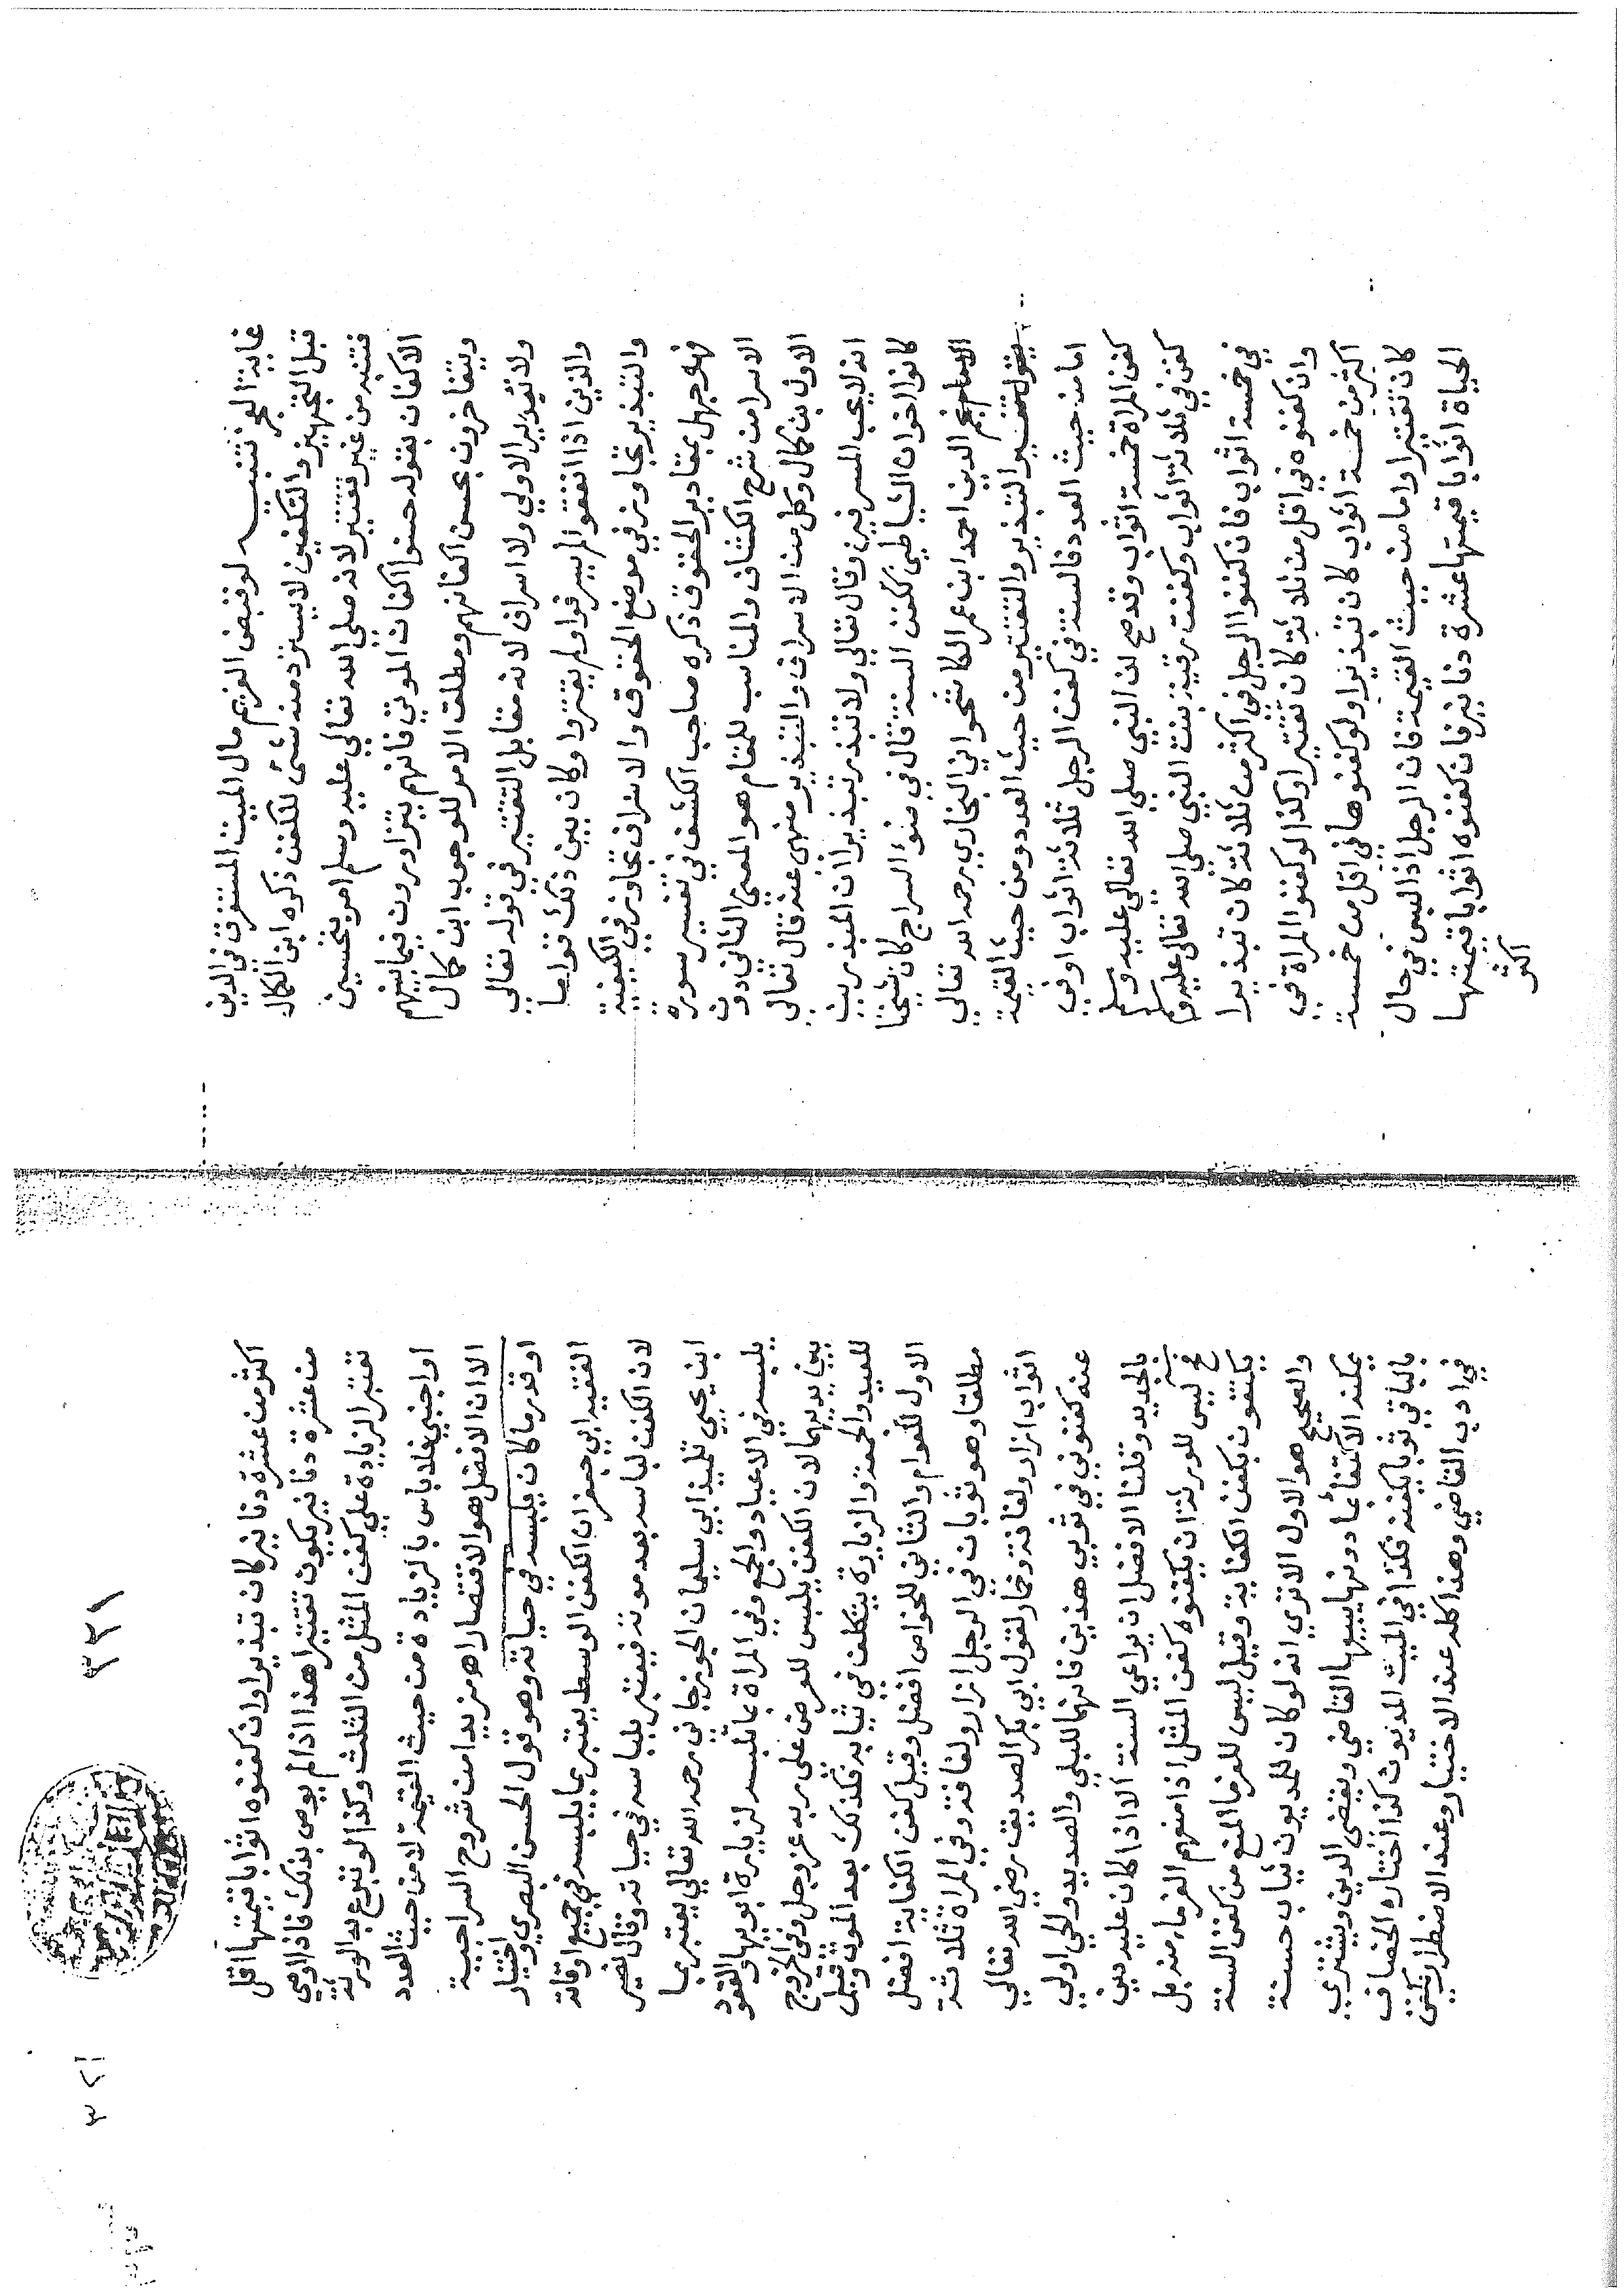 غاية العجز تنبيه لو قبض الغريم مال الميت المستغرق في الدين
قبل التجهيز والتكفين لا يسترد منه شئ للكفن ذكره ابن الكمال
فتنبه من غير تقتير لانه صلى الله تعالي عليه وسلم امر بتحسين
الاكفان بقوله حسنوا اكفان الموتي فانهم يتزاورون فيما بينهم
ويتفاخرون بحسن اكفانهم ومطلق الامر للوجوب ابن كمال
ولا تبذير الاولي ولا اسراف لانه مقابل التقتير في قوله تعالي
والذين اذا انفقوا لم يسرفوا ولم يقتروا وكان بين ذلك قواما
والتبذير تجاوز في موضع الحقوق والاسراف تجاوز في الكيفية
فهو جهل بمقادير الحقوق ذكره صاحب الكشف في تفسير سورة
الاسرا من شرح الكشاف والمناسب للمقام هو المعني الثاني دون
الاول بن كمال وكل من الاسراف والتبذير منهي عنه قال تعالي
انه لا يحب المسرفين وقال تعالي ولا تبذر تبذيرا ان المبذرين
كانوا اخوان الشياطين ككفن السنة قال في ضوء السراج كان شيخنا
الامام نجم الدين احمد ابن عمر الكاشخواني البخاري رحمه الله تعالي
يقول تفسير التبذير والتقتير من حيث العدد ومن حيث القيمة
اما من حيث العدد فالسنة في كفن الرجل ثلاثة اثواب وفي
كفن المراة خمسة اثواب وقد صح ان النبي صلي الله تعالي عليه وسلم
كفن في ثلاثة اثواب وكفنت رقية بنت النبي صلي الله تعالي عليه وسلم
في خمسة اثواب فان كفنوا الرجل في اكثر من ثلاثة كان تبذيرا
وان كفنوه في اقل من ثلاثة كان تقتيرا وكذا لو كفنوا المراة في
اكثر من خمسة اثواب كان تبذيرا ولو كفنوها في اقل من خمسة
كان تقتيرا واما من حيث القيمة فان الرجل اذا لبس في حال
الحياة اثوابا قيمتها عشرة دنانير فان كفنوه اثوابا قيمتها
اكثر
٣٢١
٣٢١
اكثر من عشرة دنانير كان تبذيرا وان كفنوه اثوابا قيمتها اقل
من عشرة دنانير يكون تقتيرا هذا اذا لم يوص بذلك فاذا اوصي
تعتبر الزيادة علي كفن المثل من الثلث وكذا لو تبرع به الورثة
او اجنبي فلا باس بالزيادة من حيث القيمة لا من حيث العدد
الا ان الافضل هو الاقتصار اه مزيدا من شروح السراجية
او قدر ما كان يلبسه في حياته وهو قول الحسن البصري واختيار
الفقيه ابي جعفر ان الكفن الوسط يعتبر بما يلبسه في جميع اوقاته
لان الكفن لباسه بعد موته فيعتبر بلباسه في حياته وقال نصير
ابن يحيي تلميذ ابي سليمان الجوزجاني رحمه الله تعالي يعتبر بما
يلبسه في الاعياد والجمع وفي المراة بما تلبسه لزيارة ابويها والقعود
بين يديهما لان الكفن يلبس للعرض على ربه عز وجل وفي الخروج
للعيد والجمعة والزيارة يتكلف في ثيابه فكذلك بعد الموت وقيل
الاول للعوام والثاني للخواص افضل وقيل كفن الكفاية افضل
مطلقا وهو ثوبان في الرجل ازار ولفافة وفي المراة ثلاثة
اثواب ازار ولفافة وخمار لقول ابي بكر الصديق رضي الله تعالي
عنه كفنوني في ثوبي هذين فانهما للبلي والصديد والحي اولي
بالجديد وقلنا الافضل ان يراعي السنة الا اذا كان عليه دين
فح ليس للورثة ان يكفنوه كفن المثل اذا منعهم الغرماء منه بل
يكتفون بكفن الكفاية وقيل ليس للغرما المنع من كفن السنة
والصحيح هو الاول الا تري انه لو كان للمديون ثياب حسنة
يمكنه الاكتفا بما دونها يبيعها القاضي ويقضي الدين ويشتري
بالباقي ثوبا يكفيه فكذا في الميت المديون كذا اختاره الخصاف
في ادب القاضي وهذا كله عند الاختيار وعند الاضطرار يكفن